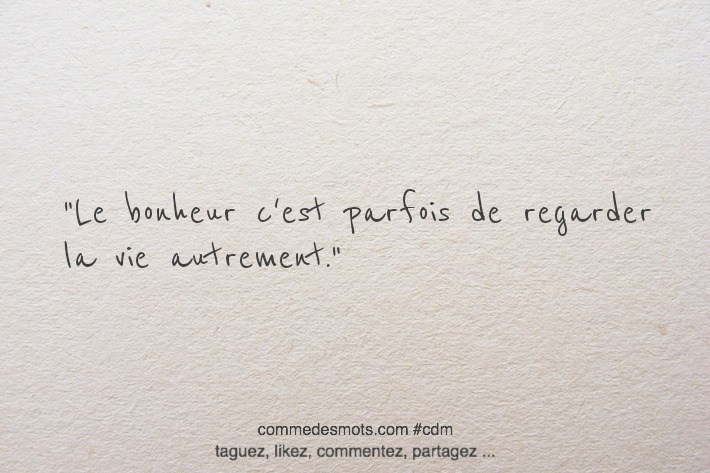 "Le bonheur c'est parfois de regarder
la vie autrement."
commedesmots.com #cdm
taguez, likez, commentez, partagez ...